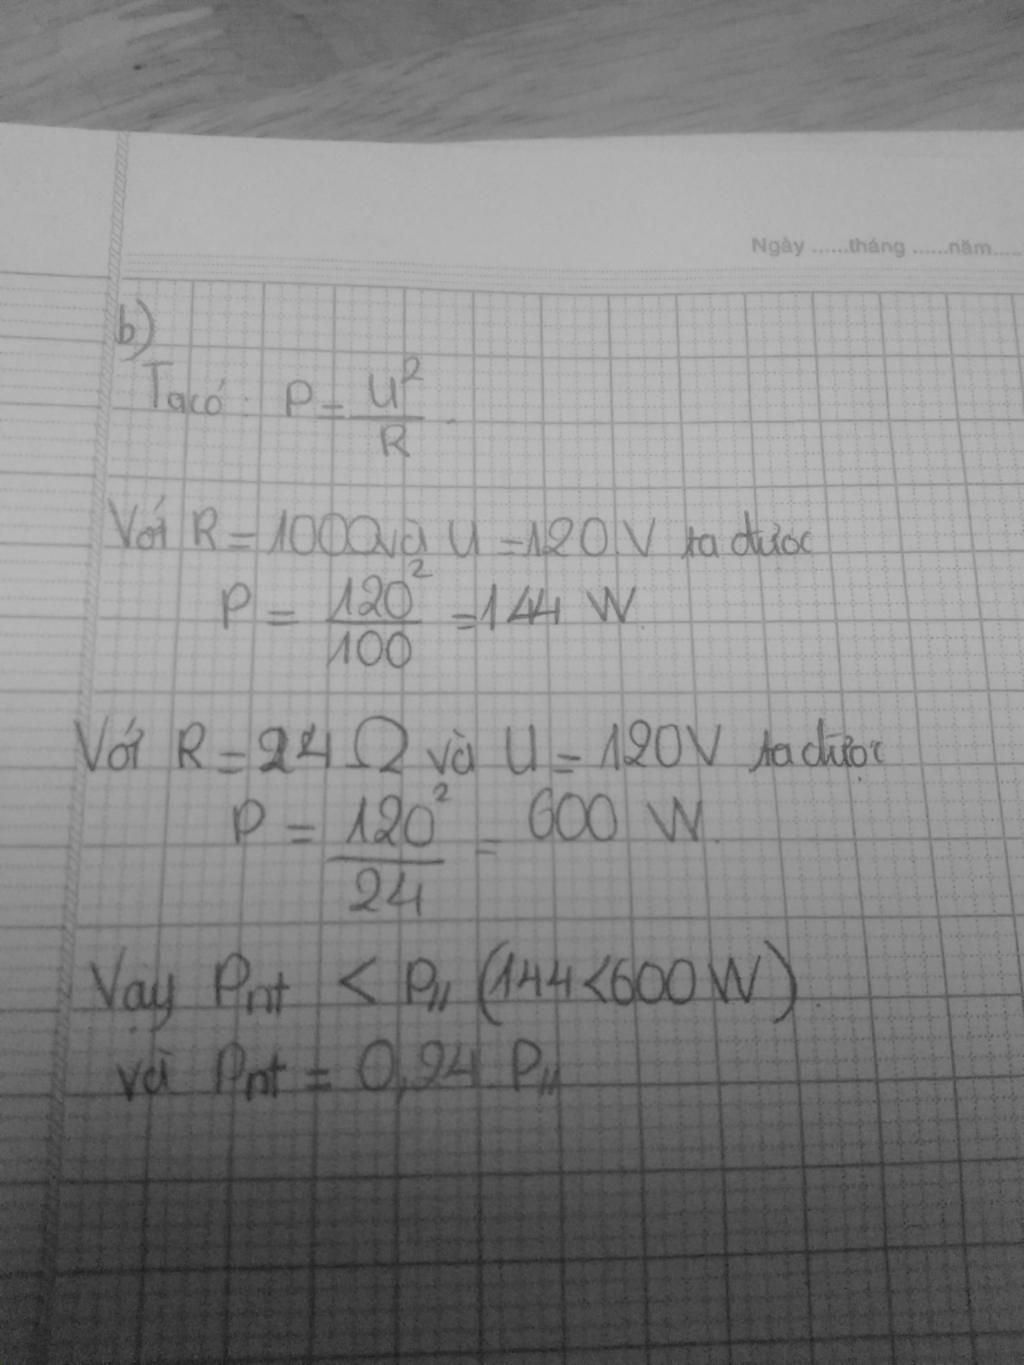 Ngày ......tháng ......năm......
b)
Ta có: P = U²/R
Với R = 100Ω và U = 120 V ta được
P = 120²/100 = 144 W.
Với R = 24 Ω và U = 120V ta được
P = 120²/24 = 600 W.
Vậy Pnt < P// (144<600 W).
và Pnt = 0,24 P//